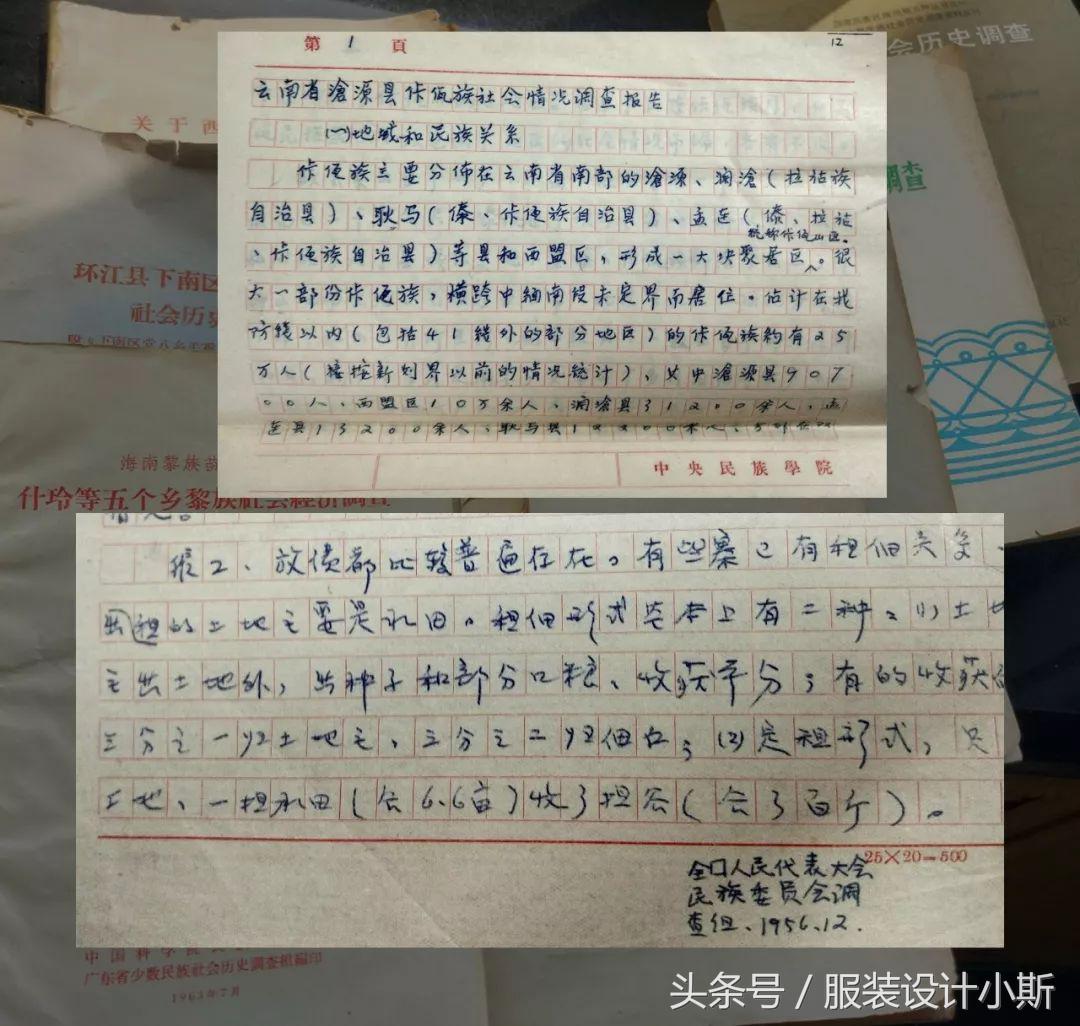 第 1 頁
12
云南省滄源县佧佤族社会情况调查报告
(一)地域和民族关系
佧佤族主要分佈在云南省南部的滄源、澜滄(拉祜族
自治县)、耿马(傣、佧佤族自治县)、孟连(傣、拉祜
统称佧佤山区。
、佧佤族自治县)等县和西盟区,形成一大块聚居区。很
大一部份佧佤族,横跨中缅南段未定界而居住。估计在我
防线以内(包括41线外的部分地区)的佧佤族约有25
万人(接按新划界以前的情况统计),其中滄源县907
00人、西盟区10万余人、澜滄县31200余人、孟
连县13200余人、耿马县1
中央民族學院
、放债都比较普遍存在。有些寨已有租佃关系、
出租的土地主要是水田。租佃形式基本上有二种:(1)土地
主出土地外,出种子和部分口粮、收获平分;有的收获
三分之一归土地主、三分之二归佃户;(2)定租形式,只
土地、一担水田(合6.6亩)收3担谷(合3百斤)。
25×20=500
全国人民代表大会
民族委员会调
查组、1956.12.
关于西
会历史调查
调查
环江县下南区
社会历
海南黎族苗
什玲等五个乡黎族社会經济調查
中国科学院
广东省少数民族社会历史調查組編印
1963年7月
头条号 / 服装设计小斯